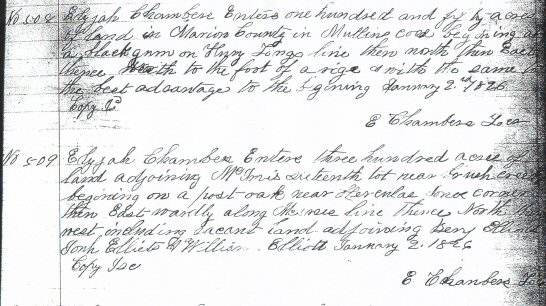 No 508 Elyjah Chambers Enters one hundred and fifty acres
of land in Marion County in Mullins cove begining at
a black gum on Henry Longs line then north then East
thence North to the foot of a rige & with the same to
the best advantage to the begining January 2nd 1826
Copy Is
E Chambers Loca
No 509 Elyjah Chambers Enters three hundred acres of
land adjoining sixteenth lot near brush creek
begining on a post oak near corner
then Eastwardly along line thence North then
west including vacant land adjoining Benj Elliott
John Elliots & William Elliott January 2. 1826
Copy Ise
E Chambers Loc